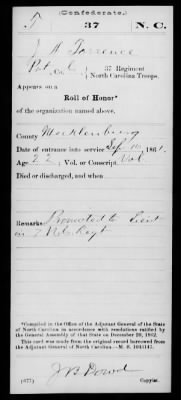 (Confederate.)
T 37 N. C.
J. A. Torrence
Pvt, Co. , 37 Regiment
North Carolina Troops.
Appears on a
Roll of Honor*
of the organization named above.
County Mecklenburg
Date of entrance into service Sep 10, 1861.
Age 22; Vol. or Conscript Vol
Died or discharged, and when
Remarks: Promoted to Lieut
in 7 N.C. Regt
*Compiled in the Office of the Adjutant General of the State
of North Carolina in accordance with resolutions ratified by
the General Assembly of that State on December 20, 1862.
This card was made from the original record borrowed from
the Adjutant General of North Carolina—M. S. 1043147.
J B Dowd
(677) Copyist.